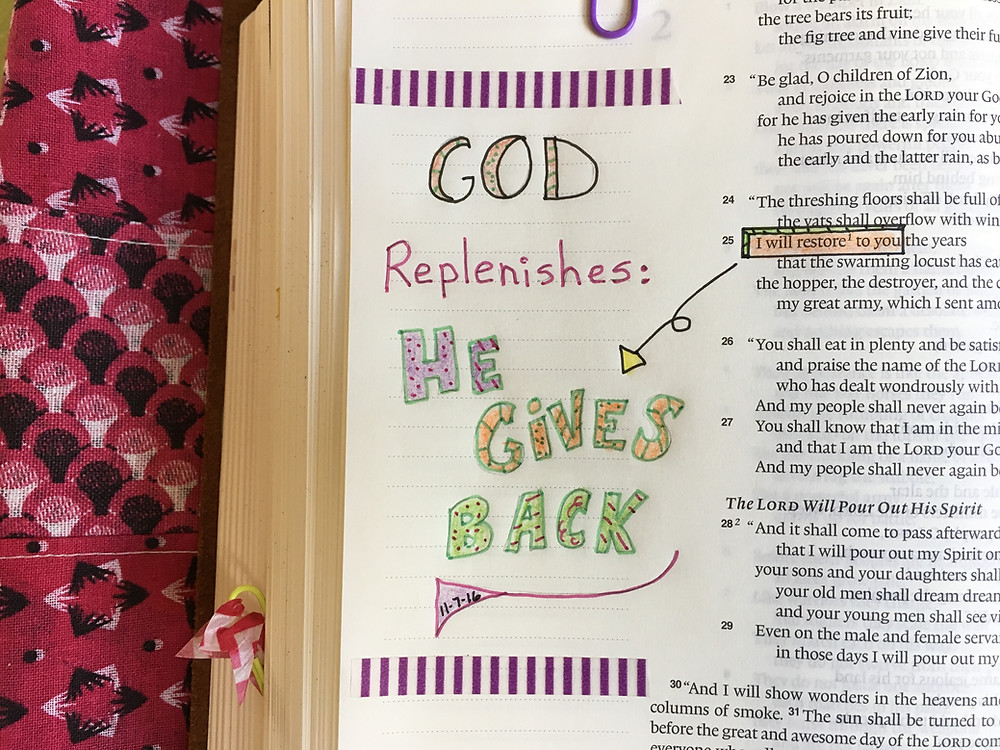 2
GOD
Replenishes:
HE
GiVES
BACK
11-7-16
the tree bears its fruit;
the fig tree and vine give their
23 “Be glad, O children of Zion,
and rejoice in the LORD your
for he has given the early rain for
he has poured down for you
the early and the latter rain, as
24 “The threshing floors shall be full of
the vats shall overflow with
25 I will restore¹ to you the years
that the swarming locust has
the hopper, the destroyer, and the
my great army, which I sent
26 “You shall eat in plenty and be
and praise the name of the
who has dealt wondrously with
And my people shall never again
27 You shall know that I am in the
and that I am the LORD your
And my people shall never again
The LORD Will Pour Out His Spirit
28 ² “And it shall come to pass
that I will pour out my Spirit
your sons and your daughters
your old men shall dream
and your young men shall see
29 Even on the male and female
in those days I will pour out my
30 “And I will show wonders in the heavens
columns of smoke. 31 The sun shall be turned to
before the great and awesome day of the LORD